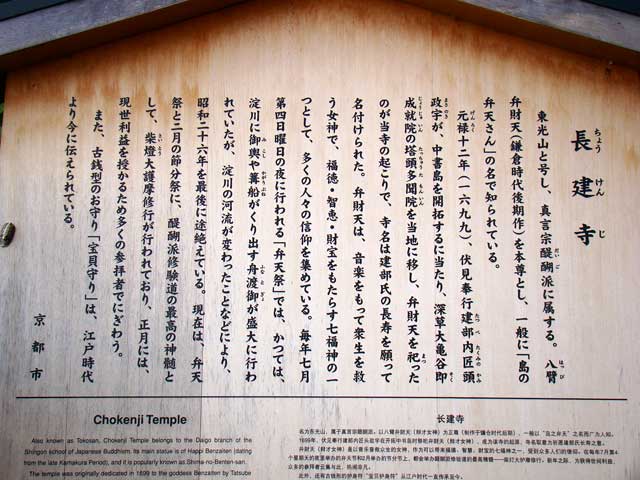 長建寺
ちょう けん じ
東光山と号し、真言宗醍醐派に属する。八臂
弁財天（鎌倉時代後期作）を本尊とし、一般に「島の
弁天さん」の名で知られている。
元禄十二年（一六九九）、伏見奉行建部内匠頭
政宇が、中書島を開拓するに当たり、深草大亀谷即
成就院の塔頭多聞院を当地に移し、弁財天を祀った
のが当寺の起こりで、寺名は建部氏の長寿を願って
名付けられた。弁財天は、音楽をもって衆生を救
う女神で、福徳・智恵・財宝をもたらす七福神の一
つとして、多くの人々の信仰を集めている。毎年七月
第四日曜日の夜に行われる「弁天祭」では、かつては、
淀川に御輿や篝船がくり出す舟渡御が盛大に行わ
れていたが、淀川の河流が変わったことなどにより、
昭和二十六年を最後に途絶えている。現在は、弁天
祭と二月の節分祭に、醍醐派修験道の最高の神髄と
して、柴燈大護摩修行が行われており、正月には、
現世利益を授かるため多くの参拝者でにぎわう。
また、古銭型のお守り「宝貝守り」は、江戸時代
より今に伝えられている。
京都市
Chokenji Temple
Also known as Tokosan, Chokenji Temple belongs to the Daigo branch of the
Shingon school of Japanese Buddhism. Its main statue is of Happi Benzaiten (dating
from the late Kamakura Period), and it is popularly known as Shima-no-Benten-san.
The temple was originally dedicated in 1699 to the goddess Benzaiten by Tatsube
长建寺